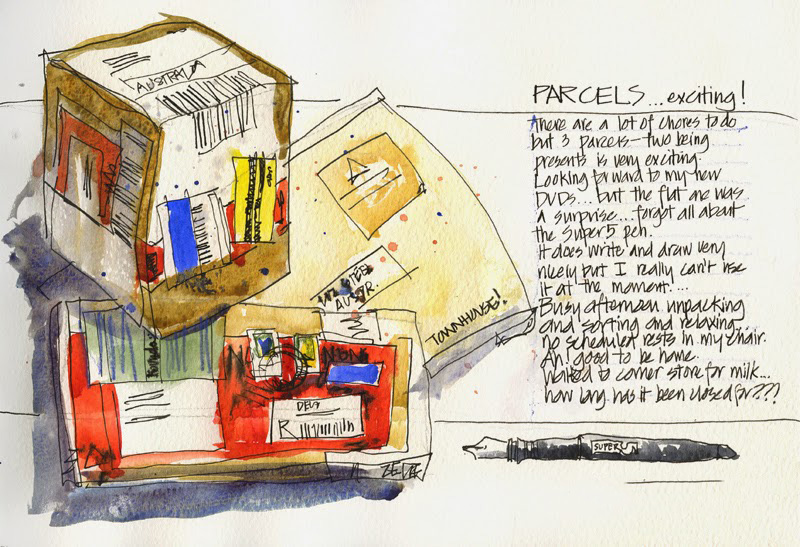 AUSTRALIA
TOWNHOUSE!
PARCELS... exciting!
There are a lot of chores to do
but 3 parcels - two being
presents is very exciting.
Looking forward to my new
DVDS... but the flat one was
a surprise... forgot all about
the Super5 pen.
It does write and draw very
nicely but I really can't use
it at the moment!...
Busy afternoon unpacking
and sorting and relaxing...
no scheduled rests in my chair.
Ah! good to be home.
Walked to corner store for milk...
how long has it been closed for???
R
SUPER5